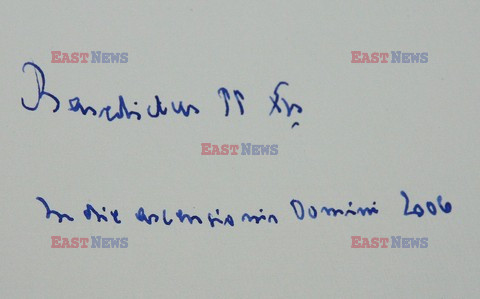 EAST NEWS EAST NEWS
Benedictus PP XVI
EAST NEWS
In die ascensionis Domini 2006
EAST NEWS EAST NEWS